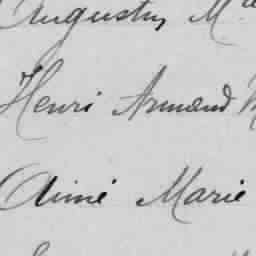 Augustin M
Henri Armand
Aimé Marie